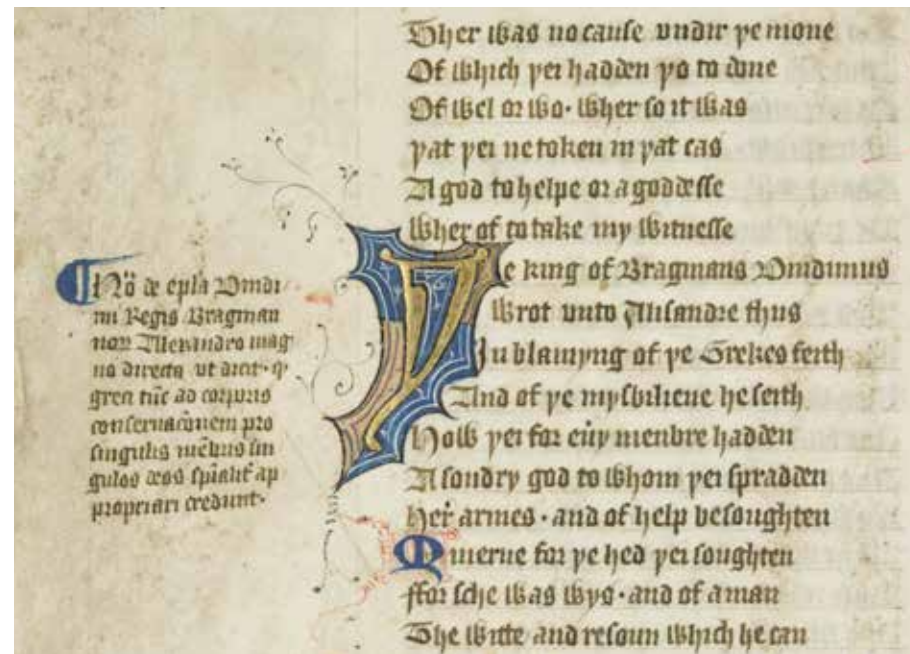 Ther was no cause vndir þe mone
Of which þei hadden þo to done
Of wel or wo· wher so it was
þat þei ne token in þat cas
A god to helpe or a goddesse
Wher of to take my witnesse
Þe king of Bragmans Dindimus
Wrot vnto Alisandre thus
In blamyng of þe Grekes feith
And of þe mysbilieue he seith
How þei for eůy menbre hadden
A sondry god to whom þei spradden
Her̉ armes· and of help besoughten
Minerue for þe hed þei soughten
ffor sche was wys· and of a man
The witte and resoun which he can
Nō de epl̄a Dindi
mi Regis Bragman
noꝝ Alexandro mag
no directa vt dicit· ꝙ
greci tūc ad corporis
conseruac̄onem pro
singulis mēbris sin
gulos deos sp̄ialit̉ ap
propriari credunt·